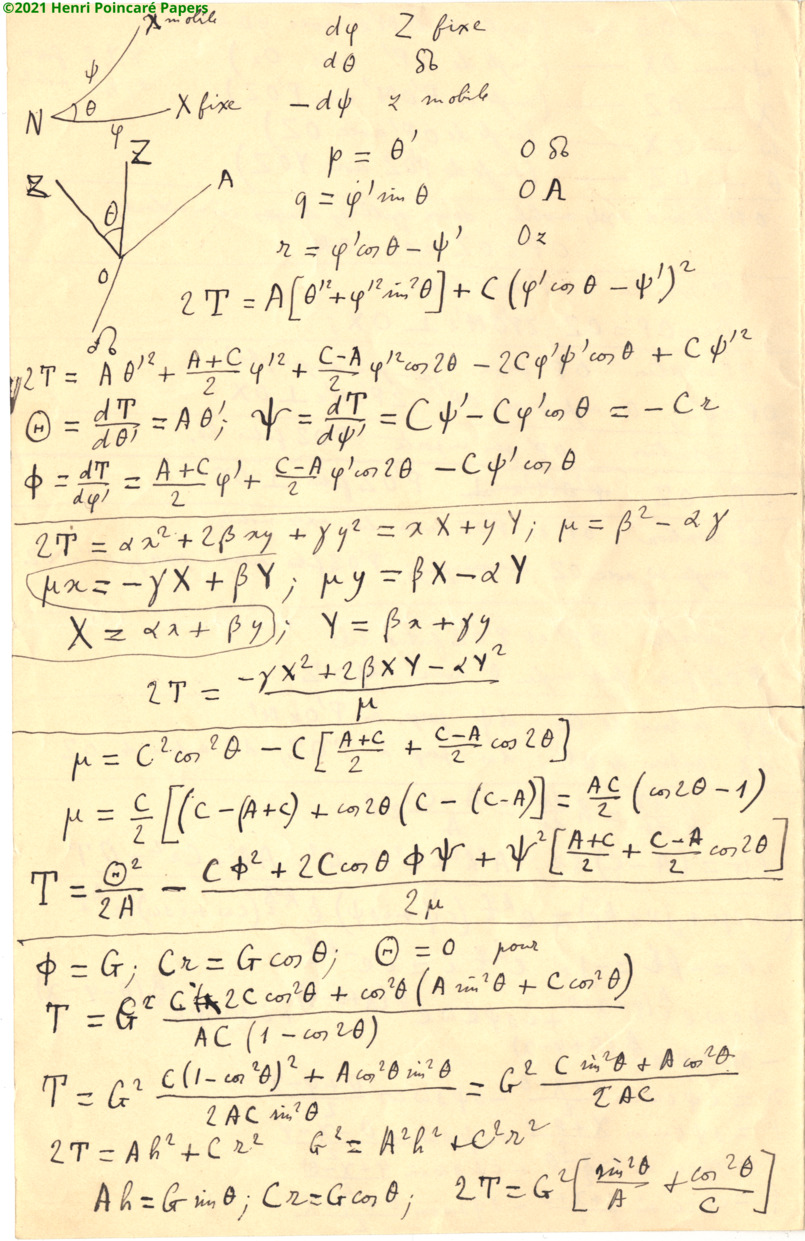 ©2021 Henri Poincaré Papers
X mobile
ψ
N θ X fixe
φ
dφ Z fixe
dθ ☊
−dψ z mobile
Z
Z A
θ
O
☊
p = θ' O ☊
q = φ' sin θ O A
r = φ' cos θ − ψ' Oz
2T = A[θ'² + φ'² sin²θ] + C (φ' cos θ − ψ')²
2T = A θ'² + (A+C)/2 φ'² + (C−A)/2 φ'² cos 2θ − 2Cφ'ψ' cos θ + C ψ'²
Θ = dT/dθ' = A θ'; Ψ = dT/dψ' = Cψ' − Cφ' cos θ = −C r
Φ = dT/dφ' = (A+C)/2 φ' + (C−A)/2 φ' cos 2θ − C ψ' cos θ
2T = αx² + 2βxy + γy² = xX + yY; μ = β² − αγ
μx = −γX + βY; μy = βX − αY
X = αx + βy; Y = βx + γy
2T = (−γX² + 2βXY − αY²)/μ
μ = C² cos²θ − C [(A+C)/2 + (C−A)/2 cos 2θ]
μ = C/2 [(C − (A+C) + cos 2θ (C − (C−A)] = AC/2 (cos 2θ − 1)
T = Θ²/2A − (CΦ² + 2C cos θ ΦΨ + Ψ² [(A+C)/2 + (C−A)/2 cos 2θ])/2μ
Φ = G; Cr = G cos θ; Θ = 0 pour
T = G² (C − 2C cos²θ + cos²θ (A sin²θ + C cos²θ))/(AC (1 − cos 2θ))
T = G² (C(1−cos²θ)² + A cos²θ sin²θ)/(2AC sin²θ) = G² (C sin²θ + A cos²θ)/(2AC)
2T = Ah² + C r² G² = A²h² + C²r²
Ah = G sin θ; Cr = G cos θ; 2T = G² [sin²θ/A + cos²θ/C]